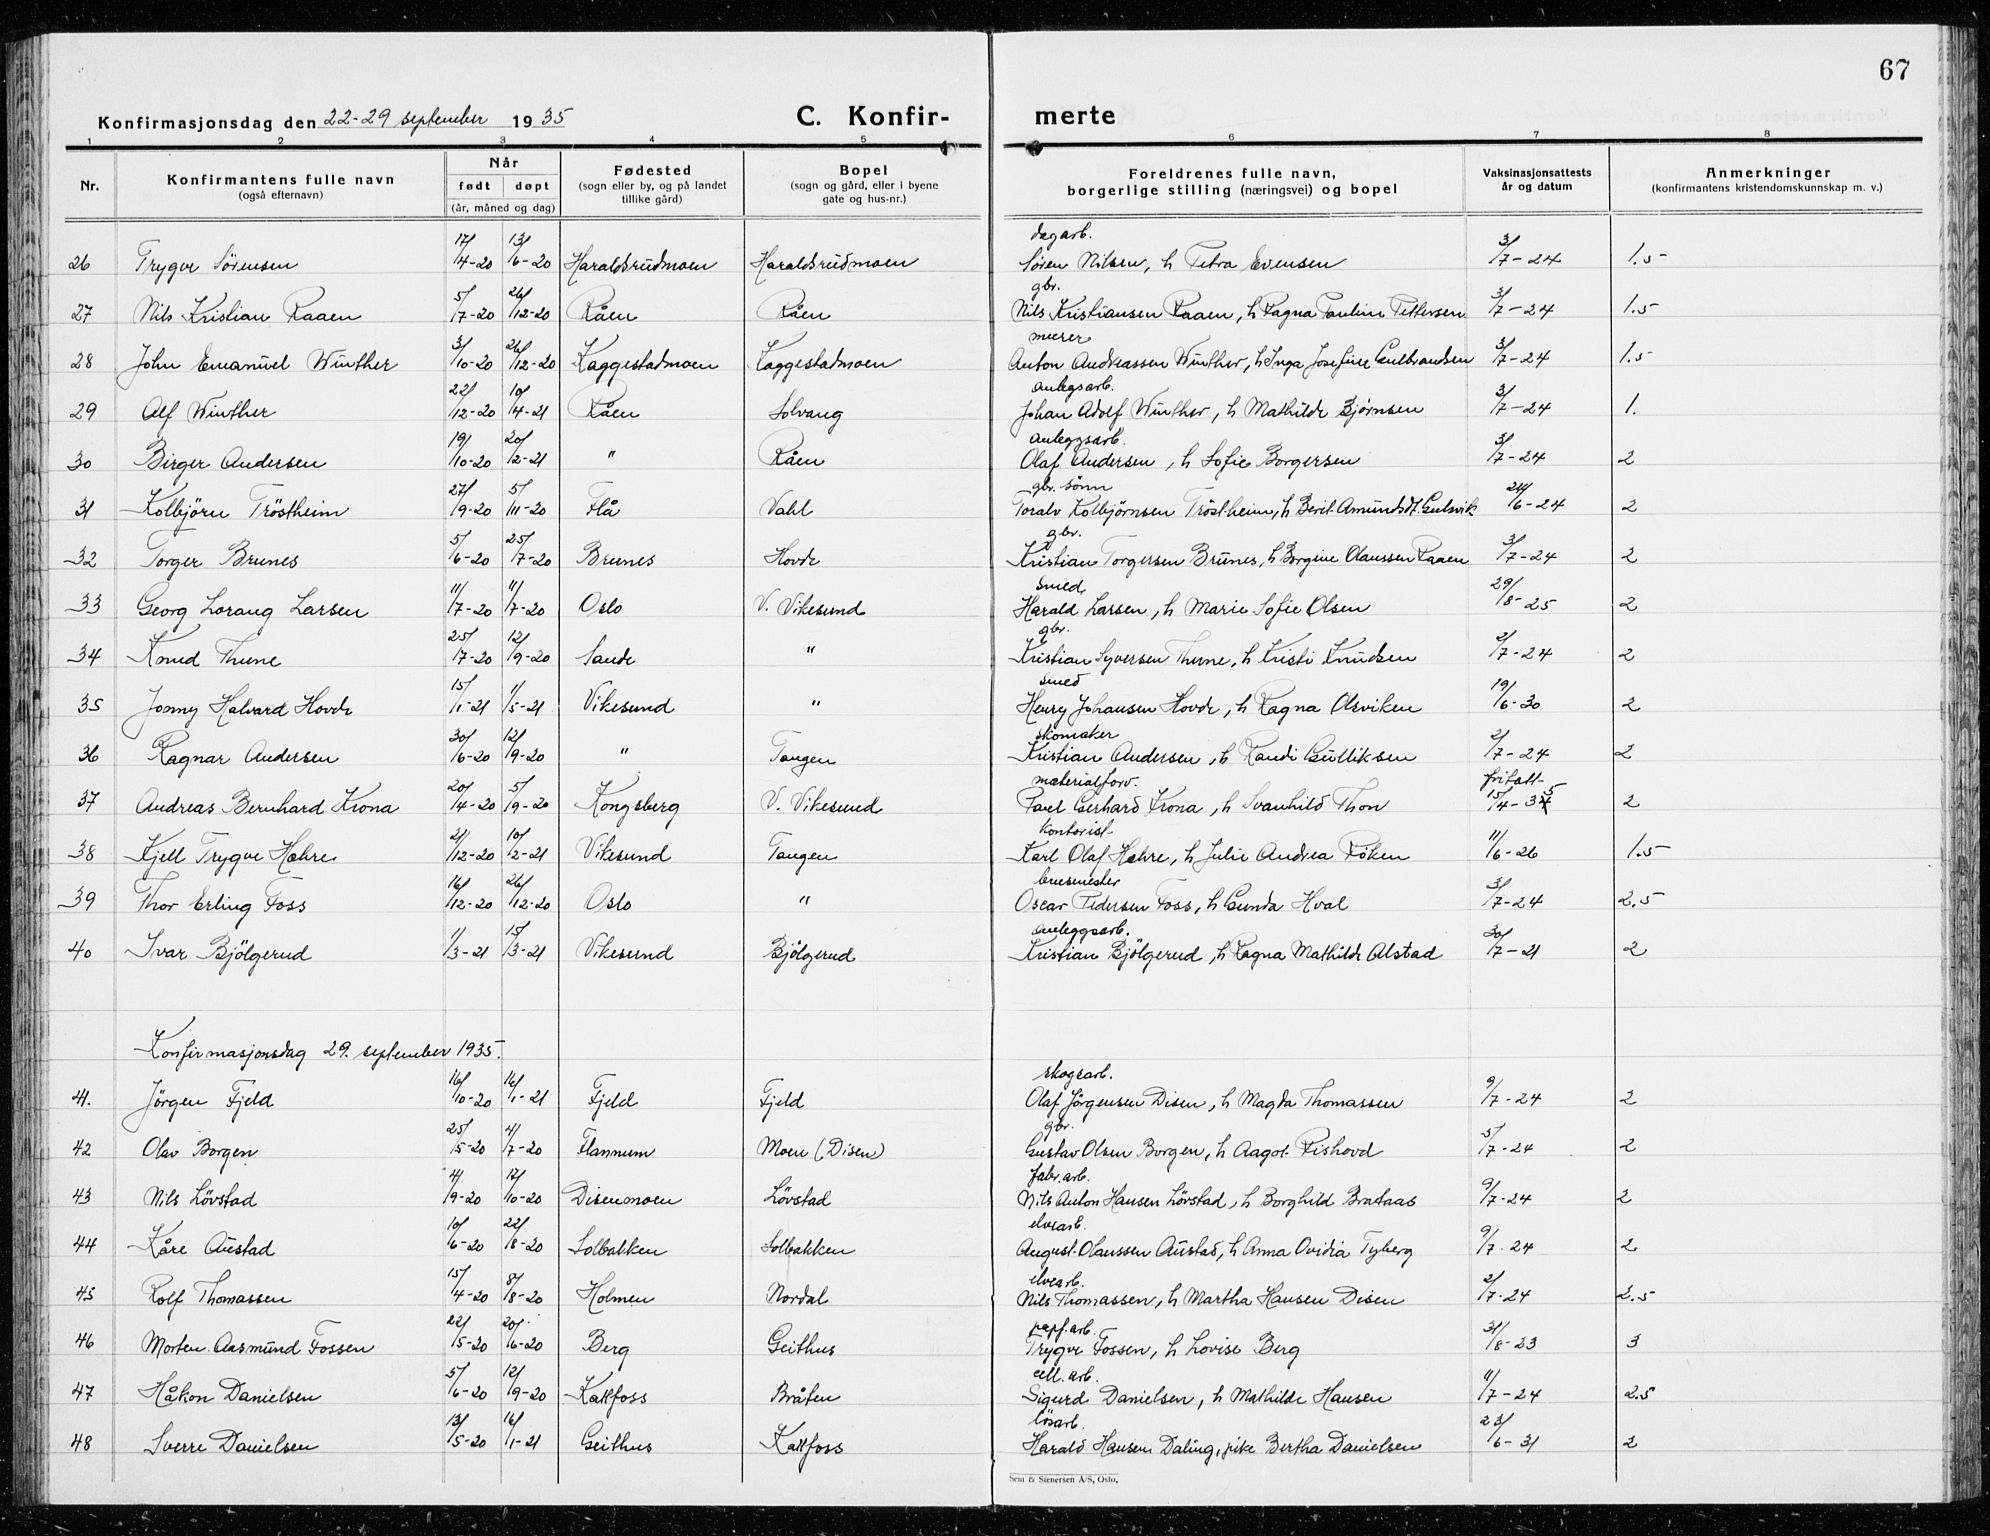 67
Konfirmasjonsdag den 22-29 september 1935 C. Konfir- merte
1 2 3 4 5 6 7 8
Nr. Konfirmantens fulle navn (også efternavn) Når født døpt (år, måned og dag) Fødested (sogn eller by, og på landet tillike gård) Bopel (sogn og gård, eller i byene gate og hus-nr.) Foreldrenes fulle navn, borgerlige stilling (næringsvei) og bopel Vaksinasjonsattests år og datum Anmerkninger (konfirmantens kristendomskunnskap m. v.)
dagarb.
26 Trygve Sörensen 17/4-20 13/6-20 Haraldsrudmoen Haraldsrudmoen Sören Nilsen, h Petra Evensen 3/7-24 1.5
gbr.
27 Nils Kristian Raaen 5/7-20 26/12-20 Råen Råen Nils Kristiansen Raaen, h Ragna Pauline Pettersen 3/7-24 1.5
murer
28 John Emanuel Winther 3/10-20 26/12-20 Kaggestadmoen Kaggestadmoen Anton Andreassen Winther, h Inga Josefine Gulbrandsen 3/7-24 1.5
anlegsarb.
29 Alf Winther 22/12-20 10/4-21 Råen Solvang Johan Adolf Winther, h Mathilde Bjørnsen 3/7-24 1.
anleggsarb.
30 Birger Andersen 19/10-20 20/2-21 " Råen Olaf Andersen, h Sofie Borgersen 3/7-24 2
gbr. sönn
31 Kolbjörn Tröstheim 27/9-20 5/11-20 Flå Vahl Toralv Kolbjörnsen Tröstheim, h Berit Amundsdt. Gulsvik 24/6-24 2
gbr.
32 Torger Brunes 5/6-20 25/7-20 Brunes Hovde Kristian Torgersen Brunes, h Borgine Olaussen Raaen 3/7-24 2
smed
33 Georg Lorang Larsen 11/7-20 11/7-20 Oslo V. Vikesund Harald Larsen, h Marie Sofie Olsen 29/8-25 2
gbr.
34 Knud Thune 25/7-20 12/9-20 Sande " Kristian Syversen Thune, h Kristi Knudsen 2/7-24 2
smed
35 Jonny Halvard Hovde 15/1-21 1/5-21 Vikesund " Henry Johansen Hovde, h Ragna Olsviken 19/6-30 2
skomaker
36 Ragnar Andersen 30/6-20 12/9-20 " Tangen Kristian Andersen, h Randi Gulliksen 2/7-24 2
materialforv. fritatt
37 Andreas Bernhard Krona 20/4-20 5/9-20 Kongsberg V. Vikesund Paul Gerhard Krona, h Svanhild Thon 15/4-35 2
kontorist
38 Kjell Trygve Hæhre 21/12-20 10/2-21 Vikesund Tangen Karl Olaf Hæhre, h Julie Andrea Röken 11/6-26 1.5
39 Thor Erling Foss 16/12-20 26/12-20 Oslo " Oscar Pedersen Foss, h Gunda Hval 3/7-24 2.5
anleggsarb.
40 Ivar Bjölgerud 1/3-21 15/3-21 Vikesund Bjölgerud Kristian Bjölgerud, h Ragna Mathilde Alstad 30/7-21 2
Konfirmasjonsdag 29. september 1935.
skogsarb.
41. Jörgen Fjeld 16/10-20 16/1-21 Fjeld Fjeld Olaf Jörgensen Disen, h Magda Thomassen 9/7-24 2
gbr.
42 Olav Borgen 25/5-20 4/7-20 Flannum Moen (Disen) Gustav Olsen Borgen, h Aagot Rishovd 5/7-24 2
fabr.arb.
43 Nils Lövstad 4/9-20 12/10-20 Disenmoen Lövstad Nils Anton Hansen Lövstad, h Borghild Brataas 9/7-24 2
elvearb.
44 Kåre Austad 10/6-20 22/8-20 Solbakken Solbakken August Olaussen Austad, h Anna Ovidia Tyberg 9/7-24 2
elvearb.
45 Rolf Thomassen 15/4-20 8/8-20 Holmen Nordal Nils Thomassen, h Martha Hansen Disen 2/7-24 2.5
papf.arb.
46 Morten Aasmund Fossen 22/5-20 20/6-20 Berg Geithus Trygve Fossen, h Lovise Berg 31/8-23 3
cell. arb.
47 Håkon Danielsen 5/6-20 12/9-20 Katfoss Bråten Sigurd Danielsen, h Mathilde Hansen 11/7-24 2.5
lösarb.
48 Sverre Danielsen 13/5-20 16/1-21 Geithus Katfoss Harald Hansen Daling, pike Bertha Danielsen 23/6-31 2
Sem & Stenersen A/S, Oslo.